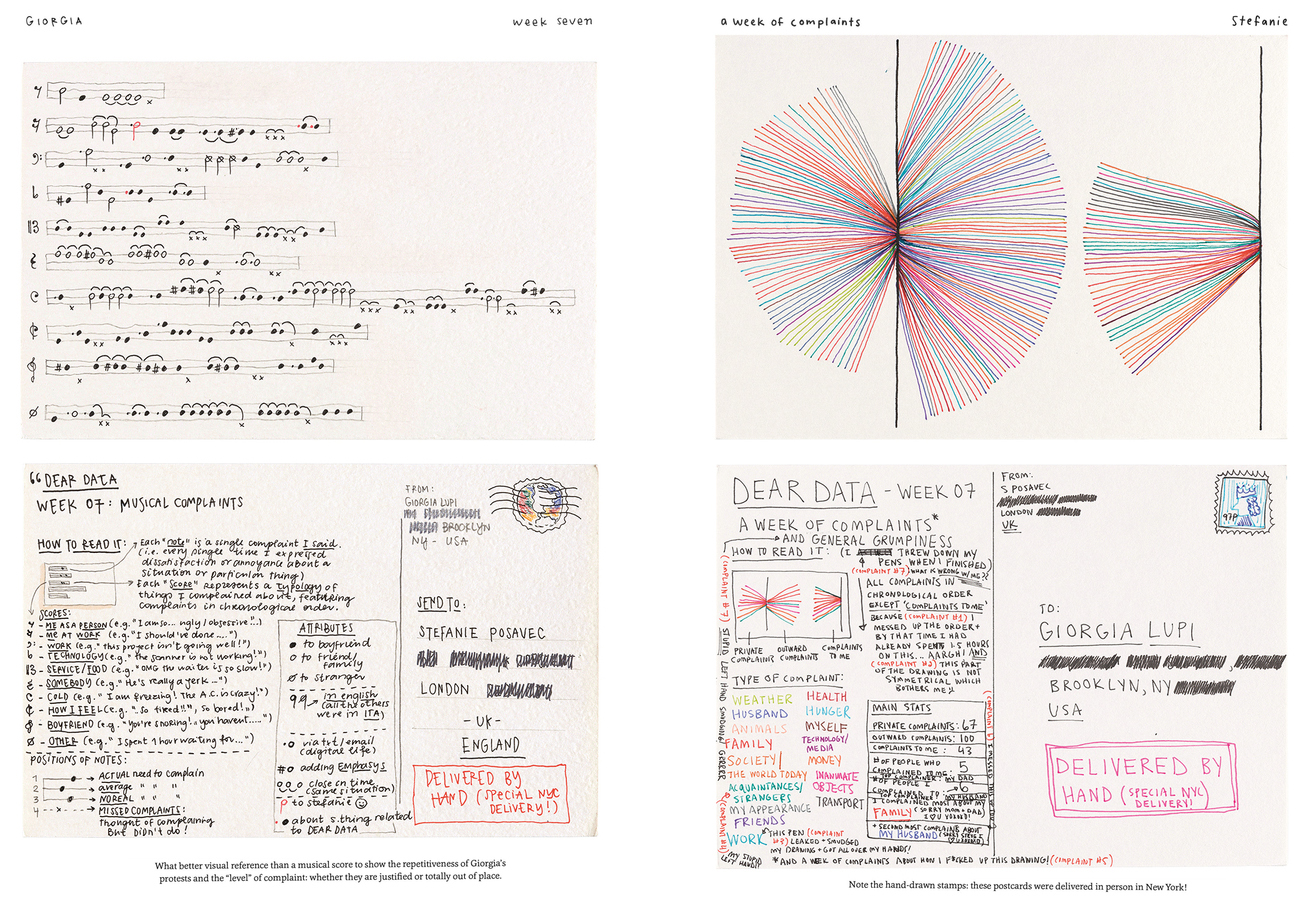 GIORGIA
week seven
"DEAR DATA
WEEK 07: MUSICAL COMPLAINTS
HOW TO READ IT:
Each "note" is a single complaint I said.
(i.e. every single time I expressed
dissatisfaction or annoyance about a
situation or particular thing)
Each "score" represents a typology of
things I complained about, featuring
complaints in chronological order.
SCORES:
- ME AS A PERSON (e.g. "I am so... ugly/obsessive"..)
- ME AT WORK (e.g. "I should've done....")
- WORK (e.g. "this project isn't going well!")
- TECHNOLOGY (e.g. "the scanner is not working!")
- SERVICE/FOOD (e.g. "OMG the waiter is so slow!")
- SOMEBODY (e.g. "He's really a jerk..")
- COLD (e.g. "I am freezing! The A.C. is crazy!")
- HOW I FEEL (e.g. "..so tired!!", so bored!)
- BOYFRIEND (e.g. "you're snoring! & you havent.....")
- OTHER (e.g. "I spent 1 hour waiting for...")
POSITIONS OF NOTES:
1 → ACTUAL need to complain
2 → average " " "
3 → NOREAL " " "
4 - x - x - → MISSED COMPLAINTS:
Thought of complaining
But DIDN't do!
ATTRIBUTES
to boyfriend
to friend/
family
to stranger
in english
(all the others
were in ITA)
via txt/email
(digital life)
adding EMPHASYS
close in time
(same situation)
to stefanie
about s.thing related
to DEAR DATA
FROM:
GIORGIA LUPI
BROOKLYN
NY - USA
SEND TO:
STEFANIE POSAVEC
LONDON
- UK -
ENGLAND
DELIVERED BY
HAND (SPECIAL NYC
DELIVERY!)
What better visual reference than a musical score to show the repetitiveness of Giorgia's
protests and the "level" of complaint: whether they are justified or totally out of place.
a week of complaints
Stefanie
DEAR DATA - WEEK 07
A WEEK OF COMPLAINTS*
AND GENERAL GRUMPINESS
HOW TO READ IT: (I THREW DOWN MY
PENS WHEN I FINISHED)
(COMPLAINT #7) WHAT IS WRONG W/ME??
ALL COMPLAINTS IN
CHRONOLOGICAL ORDER
EXCEPT 'COMPLAINTS TO ME'
BECAUSE (COMPLAINT #1) I
MESSED UP THE ORDER +
BY THAT TIME I HAD
ALREADY SPENT 1.5 HOURS
ON THIS... AARGH! AND
(COMPLAINT #2) THIS PART
OF THE DRAWING IS NOT
SYMMETRICAL WHICH
BOTHERS ME!!
PRIVATE COMPLAINTS
OUTWARD COMPLAINTS
COMPLAINTS TO ME
TYPE OF COMPLAINT:
WEATHER
HUSBAND
ANIMALS
FAMILY
SOCIETY
THE WORLD TODAY
ACQUAINTANCES/
STRANGERS
MY APPEARANCE
FRIENDS
WORK
HEALTH
HUNGER
MYSELF
TECHNOLOGY/
MEDIA
MONEY
INANIMATE
OBJECTS
TRANSPORT
MAIN STATS
PRIVATE COMPLAINTS: 67
OUTWARD COMPLAINTS: 100
COMPLAINTS TO ME: 43
# OF PEOPLE WHO
COMPLAINED TO ME: 5
TOP COMPLAINER: MY DAD
# OF PEOPLE I
COMPLAINED TO: 6
I COMPLAINED MOST ABOUT MY
FAMILY (SORRY MOM + DAD,
+ SECOND MOST COMPLAIN ABOUT
MY HUSBAND
THIS PEN (COMPLAINT
#3) LEAKED + SMUDGED
MY DRAWING + GOT ALL OVER MY HANDS!
(COMPLAINT #4)
MY STUPID
LEFT HAND!!
*AND A WEEK OF COMPLAINTS ABOUT HOW I F*CKED UP THIS DRAWING! (COMPLAINT #5)
FROM:
S POSAVEC
LONDON
UK
97P
TO:
GIORGIA LUPI
BROOKLYN, NY
USA
DELIVERED BY
HAND (SPECIAL NYC
DELIVERY!)
Note the hand-drawn stamps: these postcards were delivered in person in New York!